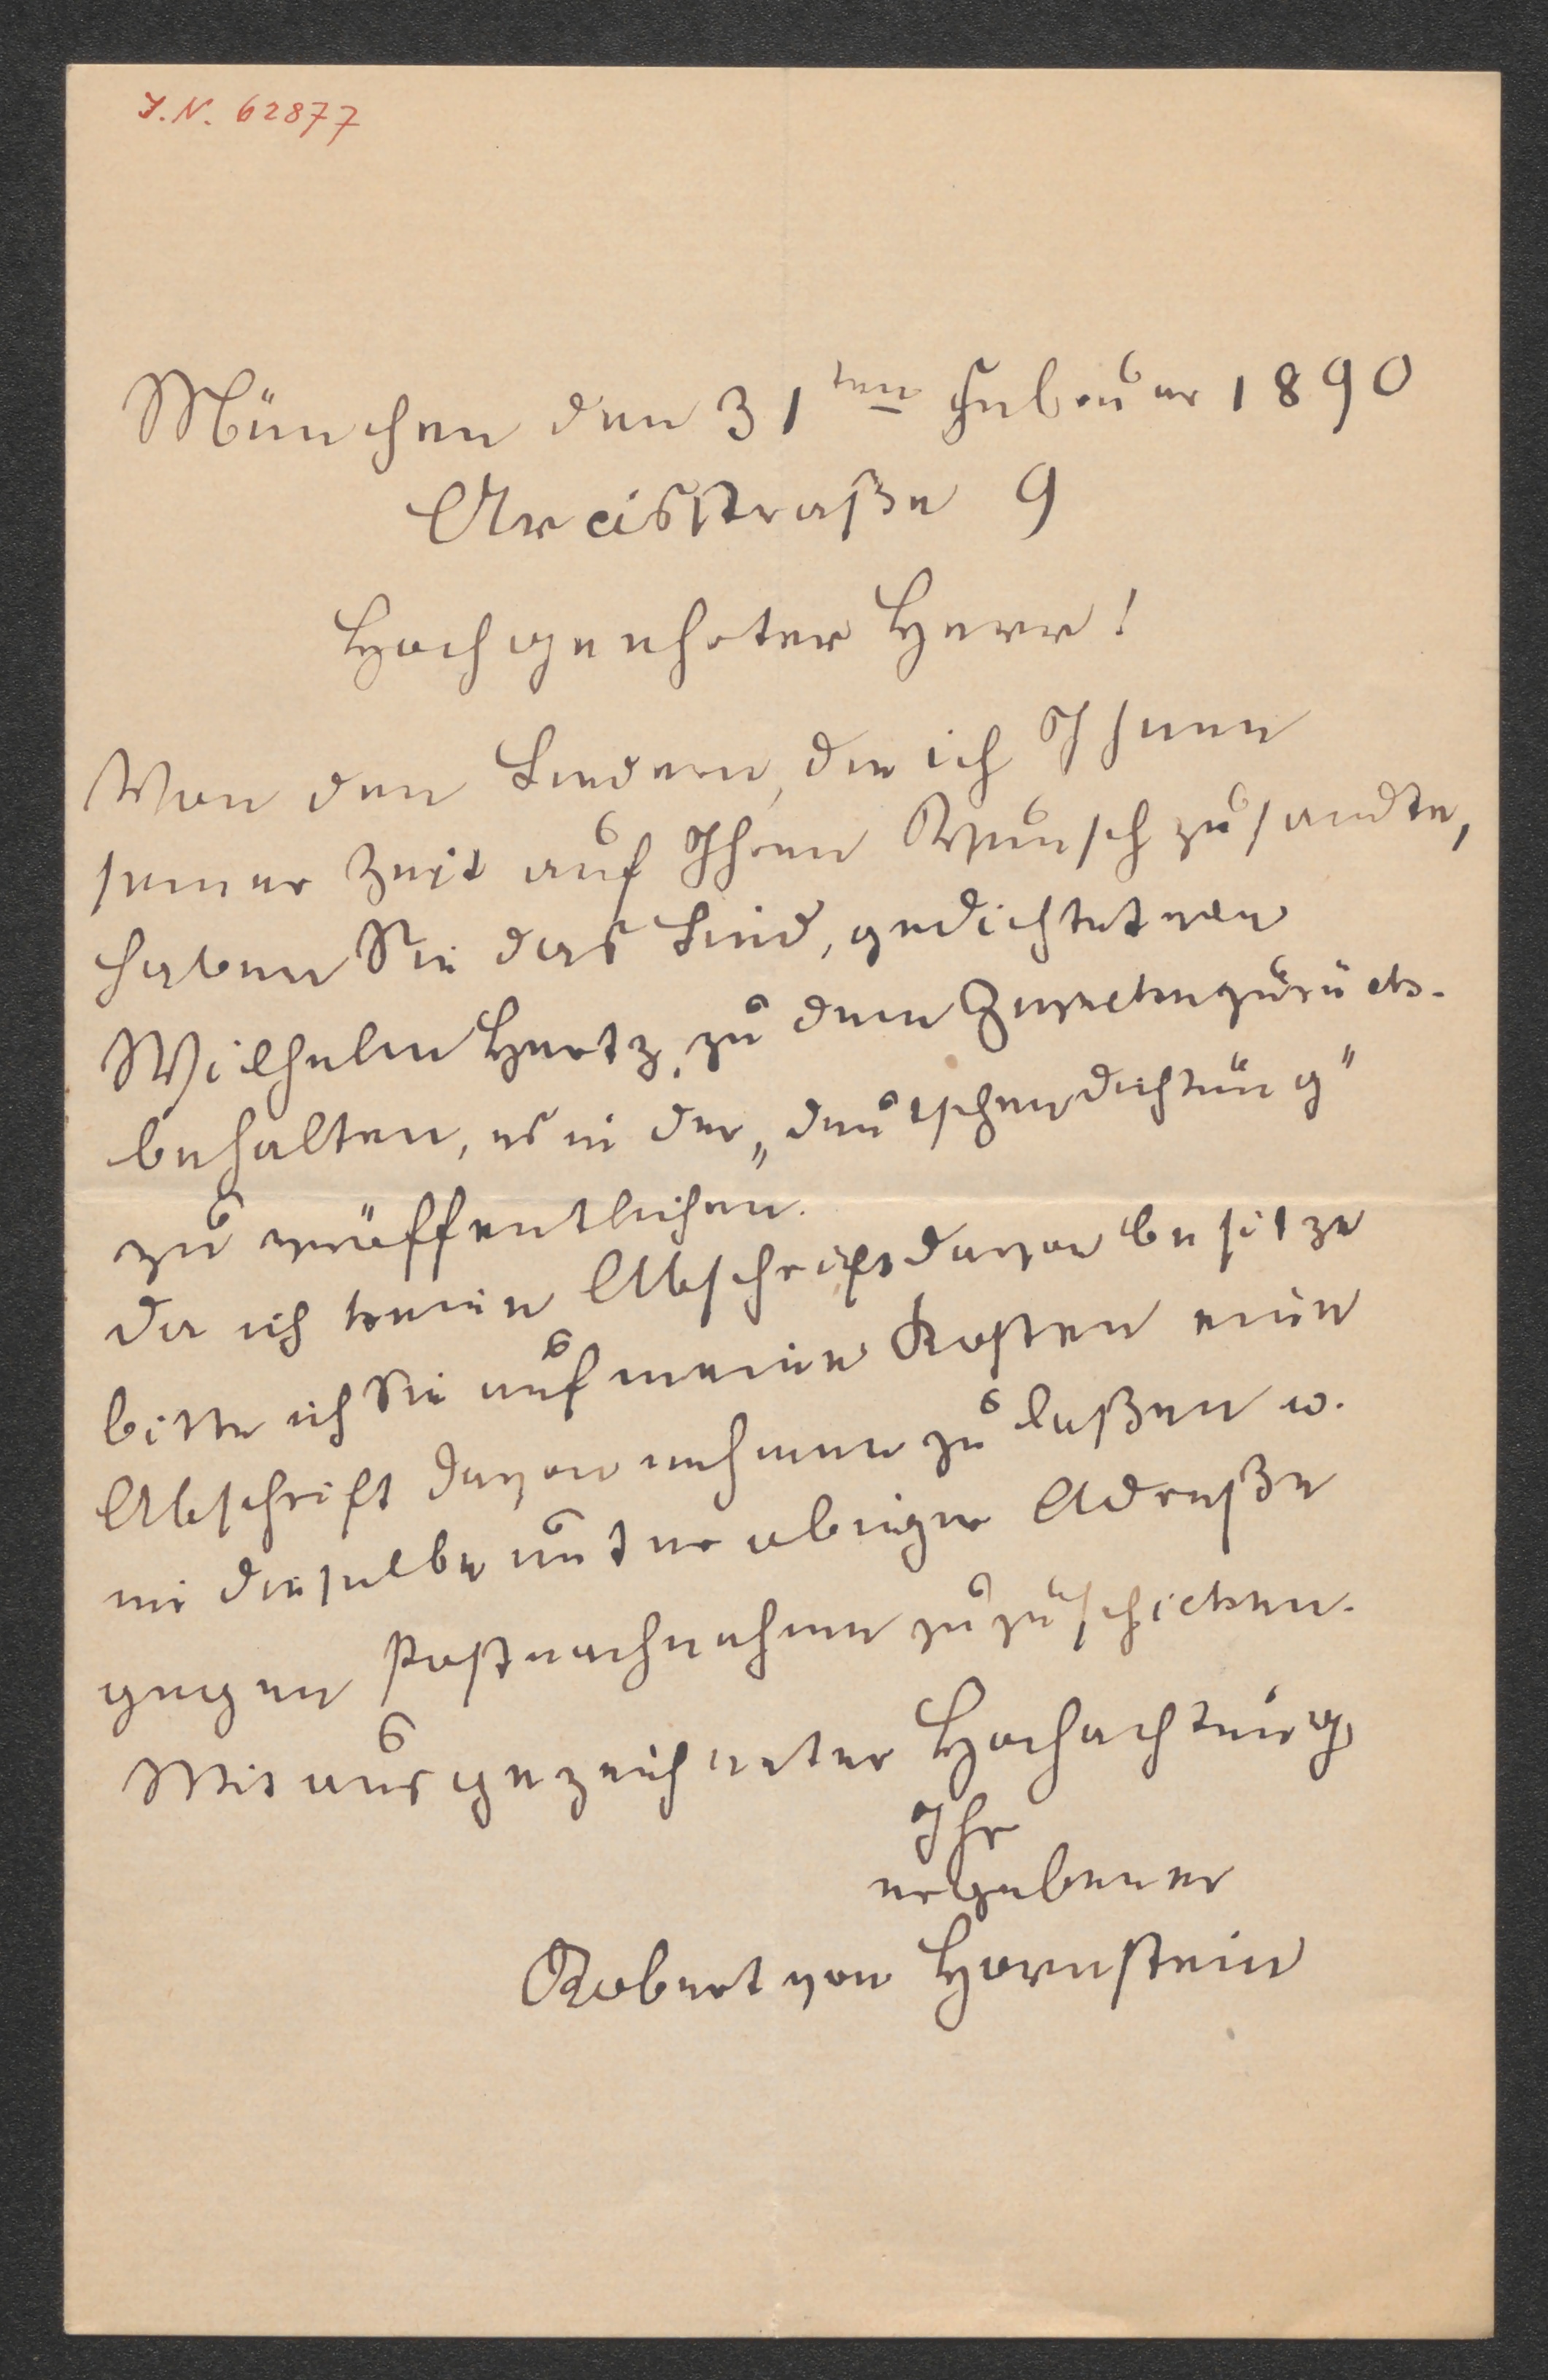 I.N. 62877
München den 31ten Februar 1890
Arcisstraße 9
Hochgeehrter Herr!
Von den Liedern, die ich Ihnen
seiner Zeit auf Ihren Wunsch zusandte,
haben Sie das Lied, gedichtet von
Wilhelm Hertz, zu dem Zwecke zurück-
behalten, es in der „deutschen dichtung"
zu veröffentlichen.
Da ich keine Abschrift davon besitze
bitte ich Sie auf meine Kosten eine
Abschrift davon nehmen zu laßen u.
mir dieselbe unter obiger Adreße
gegen Postnachnahme zuzuschicken.
Mit ausgezeichneter Hochachtung
Ihr
ergebener
Robert von Hornstein